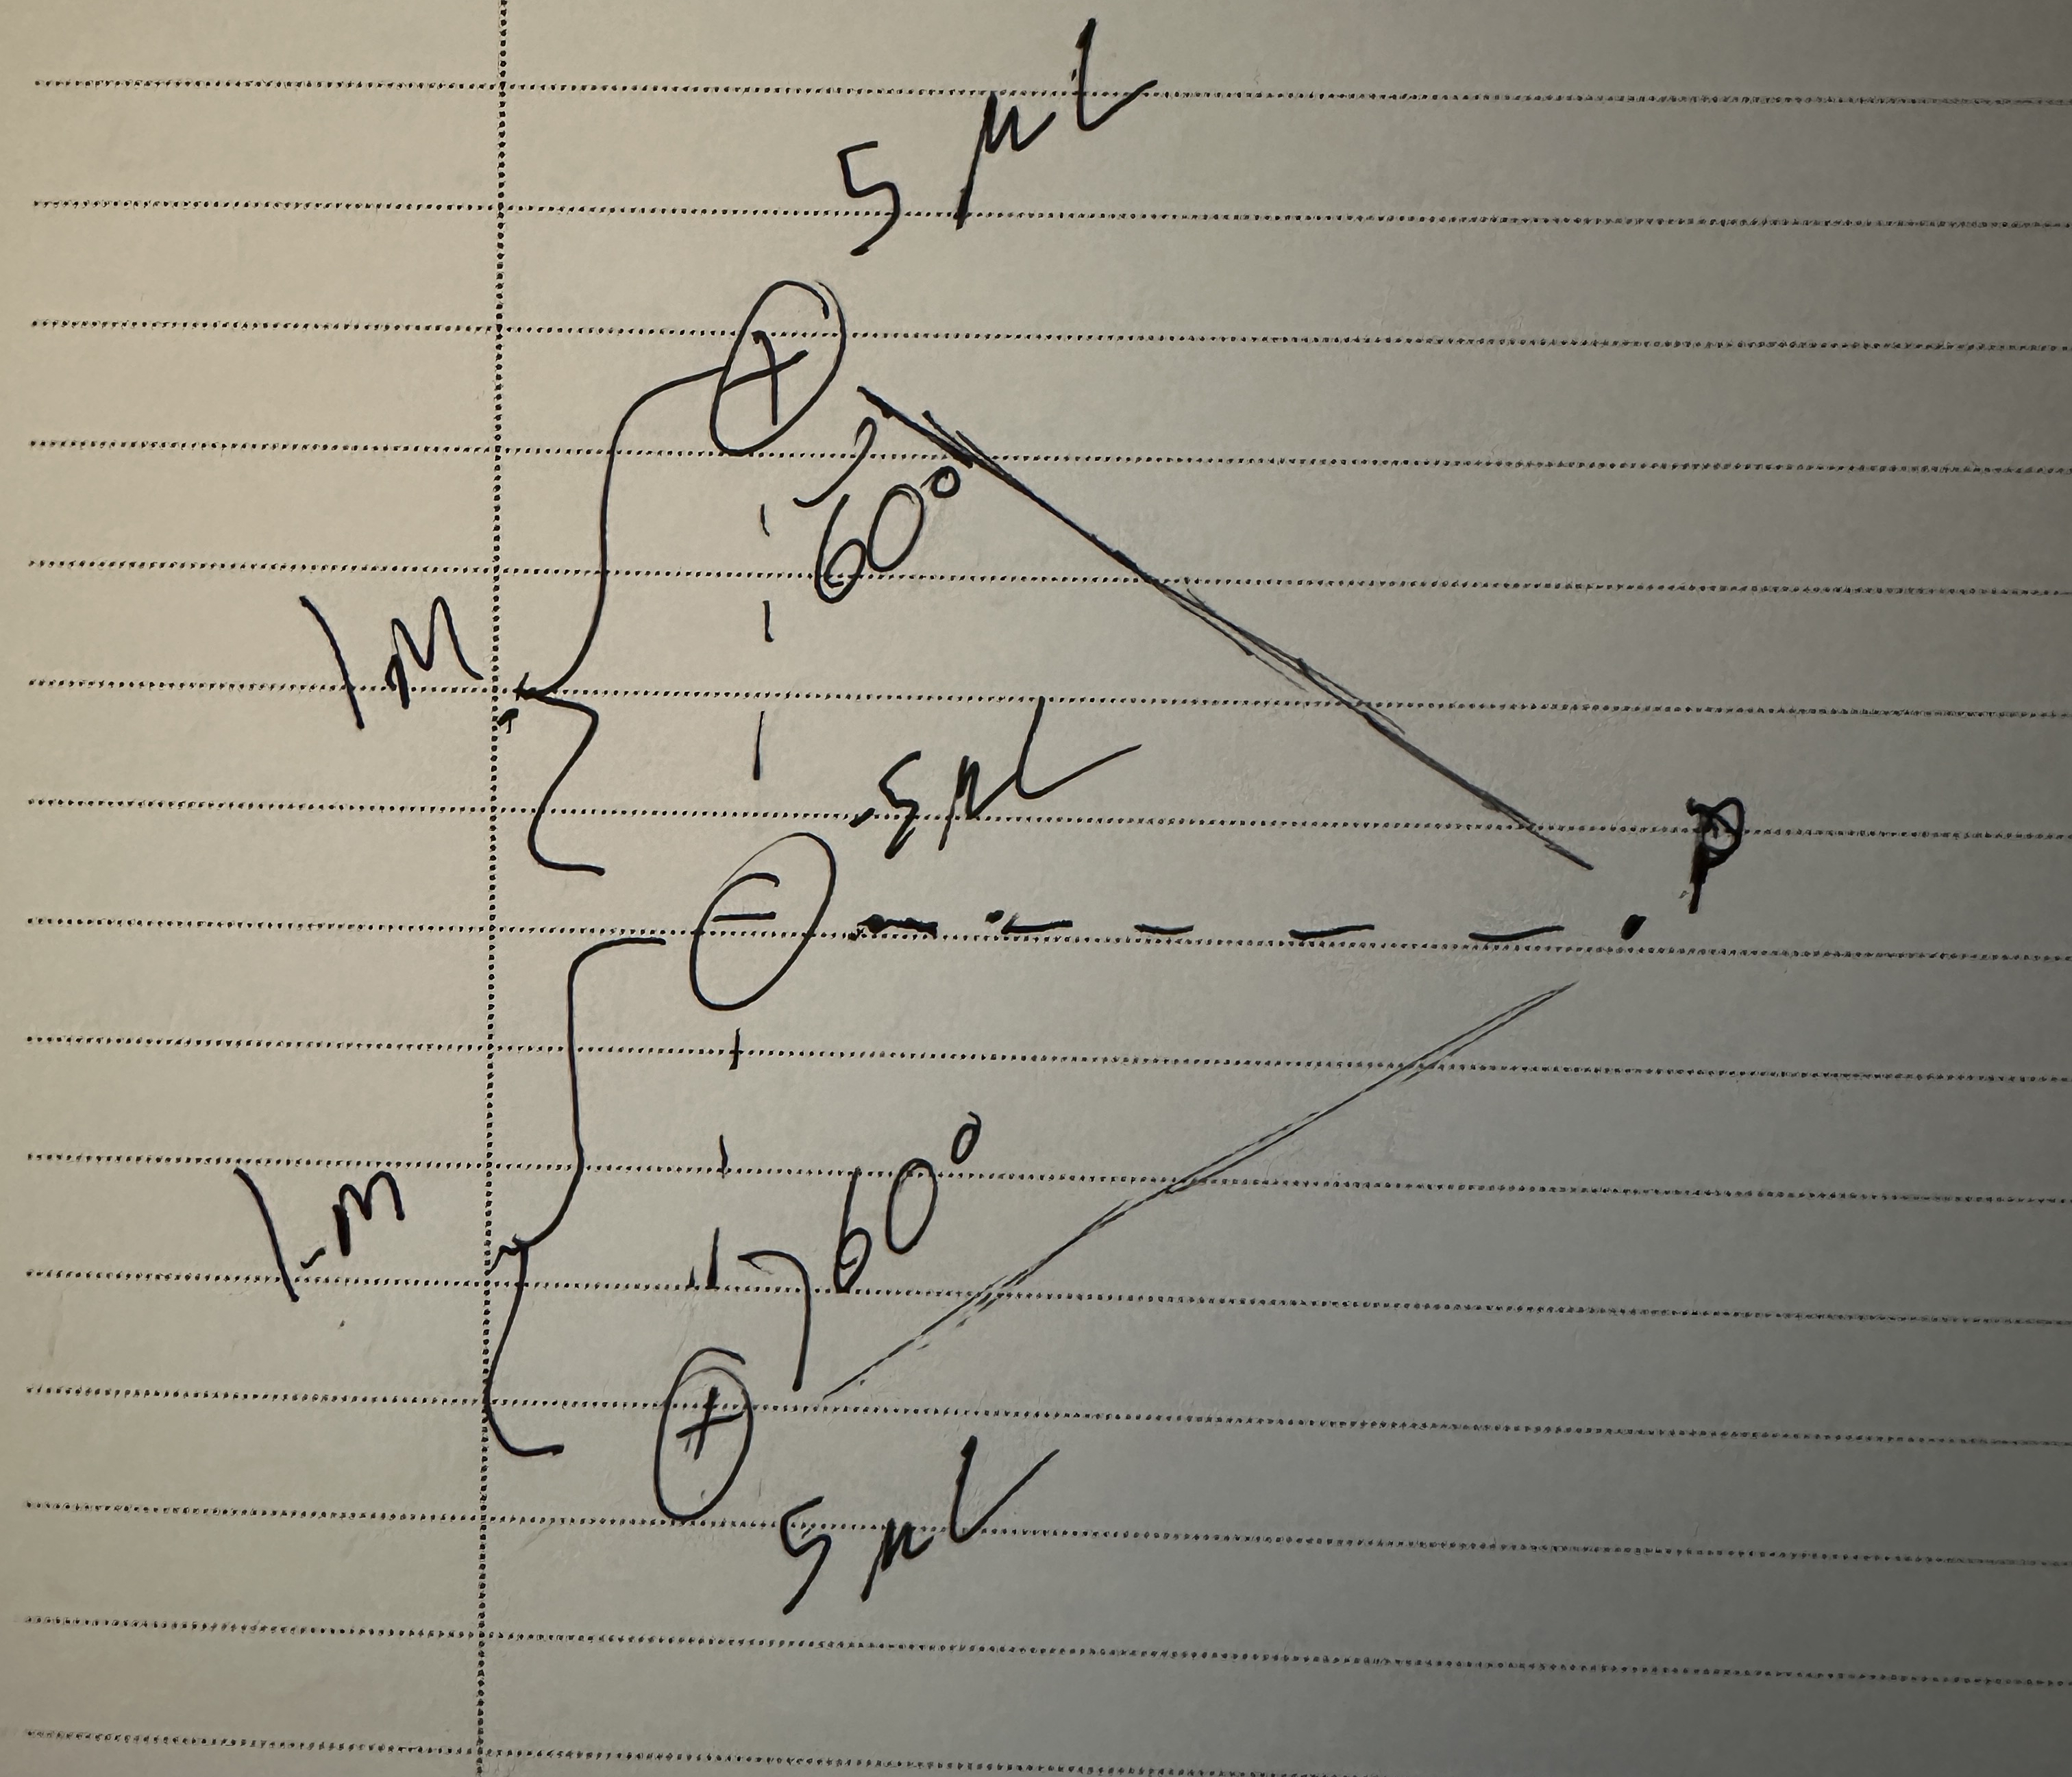 5 μC
+
60°
1m
-5 μC
−
P
1m
60°
+
5 μC